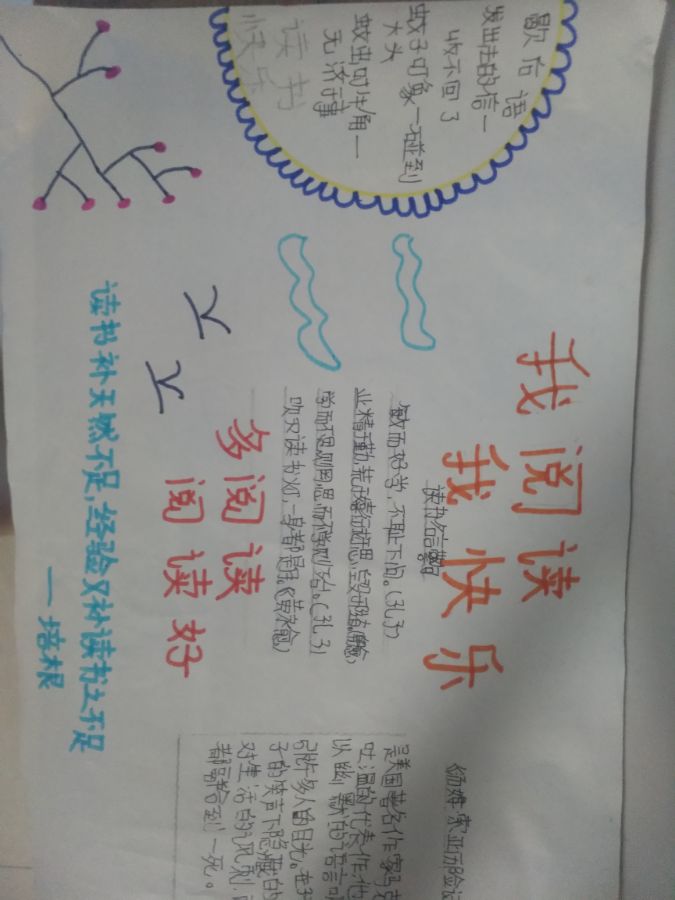 歇后语
发出去的信一
收不回了
蚊子叮象一碰到
大头
蚊虫叮牛角一
无济于事
读书
快乐
我阅读
我快乐
读书名言警句
敏而好学,不耻下问。(孔子)
业精于勤,荒于嬉,行成于思,毁于随。(韩愈)
学而不思则罔,思而不学则殆。(孔子)
吹灭读书灯,一身都是月。
多阅读
阅读好
读书补天然不足,经验又补读书之不足
—培根
汤姆·索亚历险记
是美国著名作家马克
吐温的代表作,他
以幽默的语言吸
引许多人的目光。在孩
子的笑声下隐藏的
对生活的讽刺